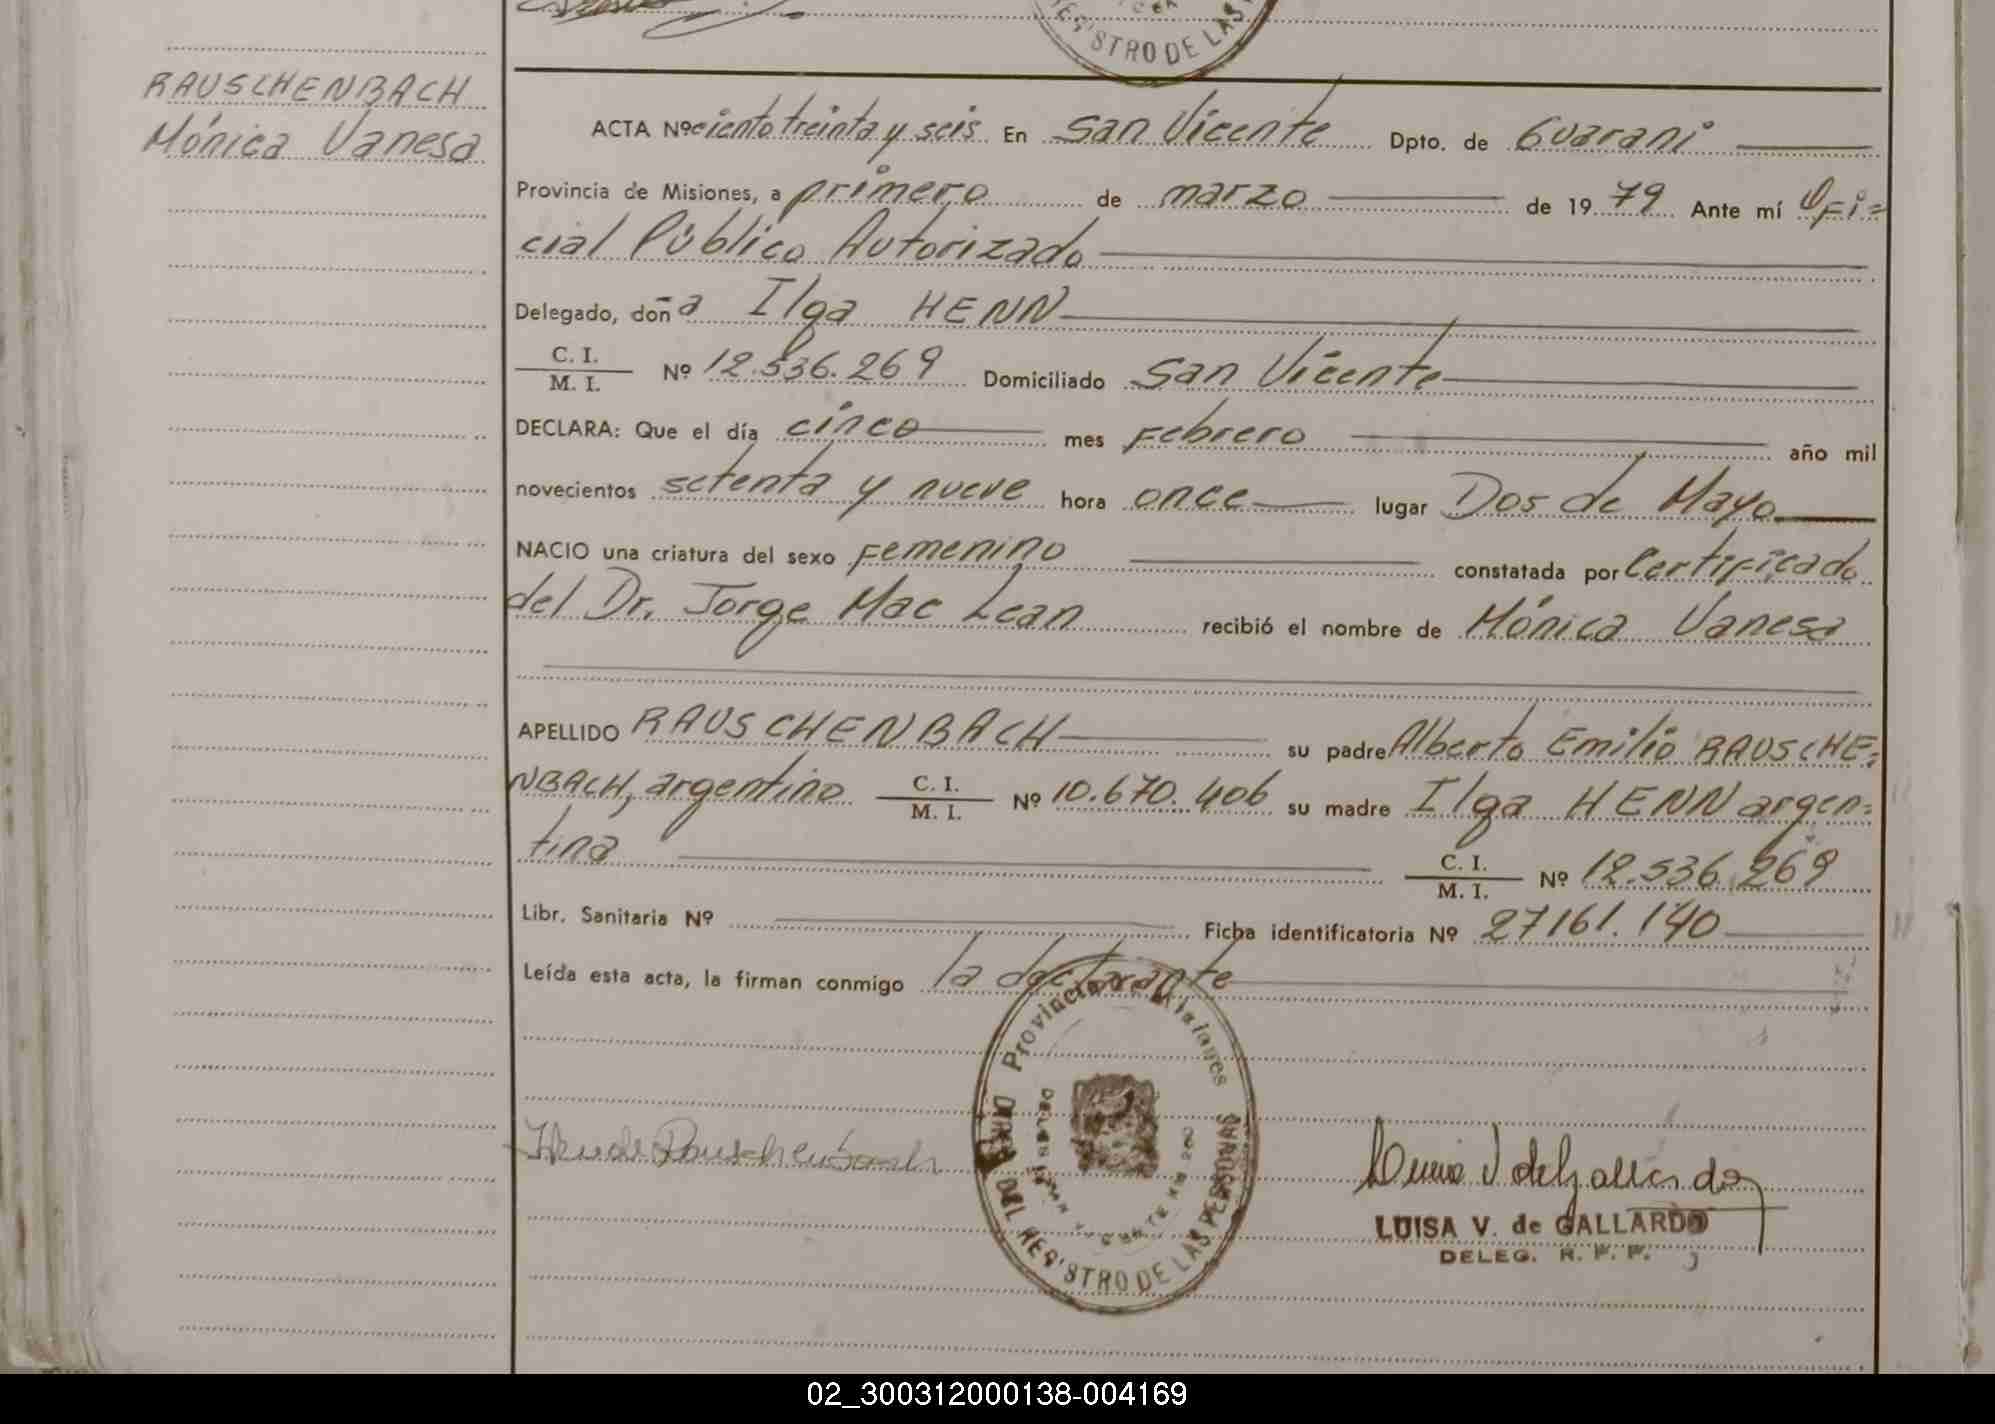 REGISTRO DE LAS
RAUSCHENBACH
Mónica Vanesa
ACTA Nº ciento treinta y seis En San Vicente Dpto. de Guarani
Provincia de Misiones, a primero de marzo de 1979 Ante mí Ofi=
cial Público Autorizado
Delegado, doña Ilga HENN
C. I.
M. I. Nº 12.536.269 Domiciliado San Vicente
DECLARA: Que el día cinco mes Febrero año mil
novecientos setenta y nueve hora once lugar Dos de Mayo
NACIO una criatura del sexo Femenino constatada por Certificado
del Dr. Jorge Mac Lean recibió el nombre de Mónica Vanesa
APELLIDO RAUSCHENBACH su padre Alberto Emilio RAUSCHE=
NBACH, argentino C. I.
M. I. Nº 10.670.406 su madre Ilga HENN argen=
tina C. I.
M. I. Nº 12.536.269
Libr. Sanitaria Nº Ficha identificatoria Nº 27161.140
Leída esta acta, la firman conmigo la declarante
Provincia de Misiones
DEL REGISTRO DE LAS PERSONAS
LUISA V. de GALLARDO
DELEG. R. P. P.
02_300312000138-004169